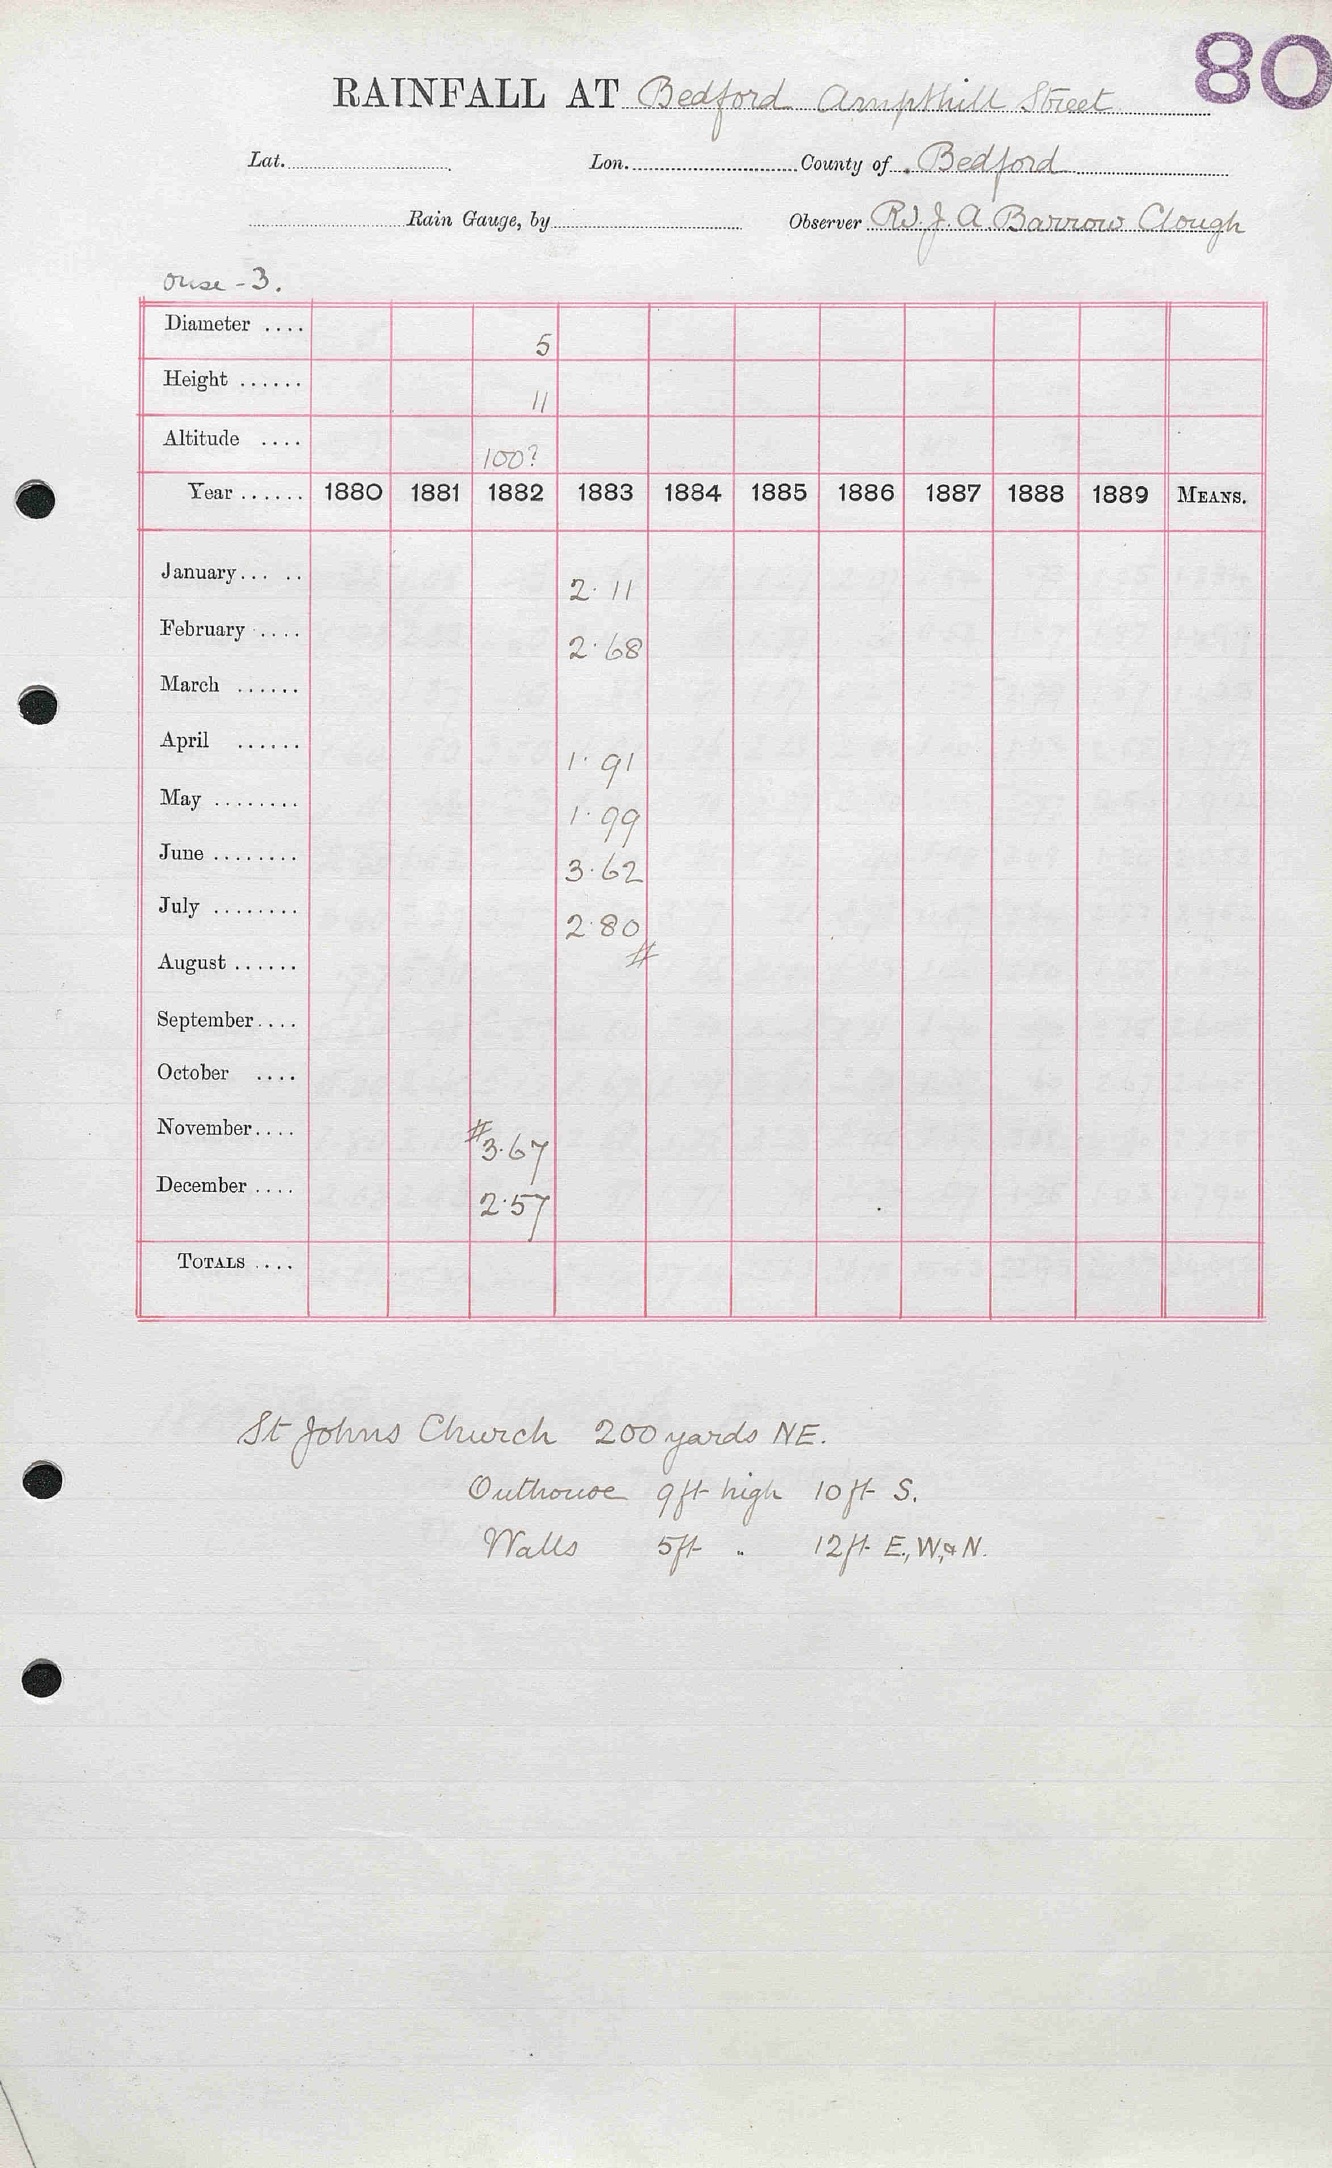 80
RAINFALL AT Bedford Ampthill Street
Lat. Lon. County of Bedford
Rain Gauge, by Observer Rd. J. A. Barrow Clough
Ouse - 3.
Diameter .... 5
Height ...... 11
Altitude .... 100?
Year ...... 1880 1881 1882 1883 1884 1885 1886 1887 1888 1889 MEANS.
January... .. 2.11
February .... 2.68
March ......
April ...... 1.91
May ........ 1.99
June ........ 3.62
July ........ 2.80
August ...... #
September....
October ....
November.... #3.67
December .... 2.57
TOTALS ....
St Johns Church 200 yards NE.
Outhouse 9ft high 10ft S.
Walls 5ft " 12ft E., W, & N.